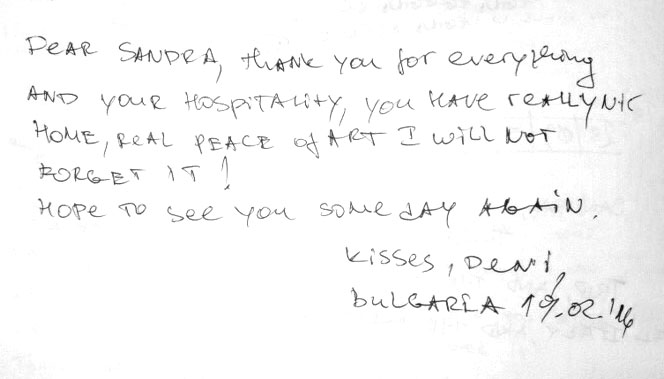 DEAR SANDRA, thANK you for everything
AND YOUR HOSPITALITY, YOU HAVE REALLY NIC
HOME, REAL PEACE of ART I WILL NOT
FORGET IT!
HOPE TO see you some dAY AGAIN.
KISSES, DENI,
BULGARIA 19.02.'16